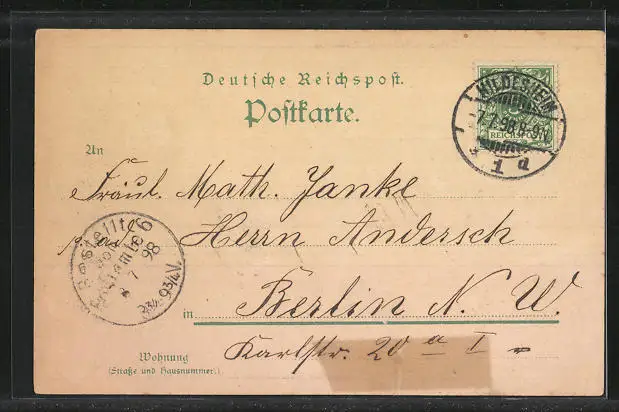 Deutsche Reichspost.
Postkarte.
HILDESHEIM
7.7.98.8-9N.
1 a
REICHSPOST
An
Fräul. Math. Janke
Herrn Andersch
in Berlin N. W.
Karlstr. 20 a I
Bestellt
vom
Postamte 6
8 7 98
Wohnung
(Straße und Hausnummer.)